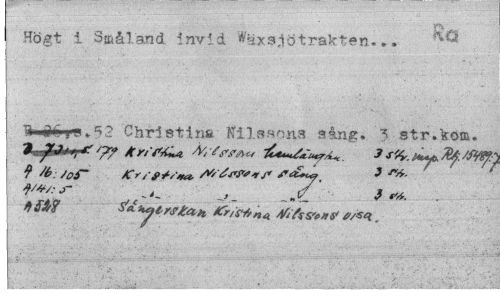 Högt i Småland invid Wäxsjötrakten... Ra
B 26,s.52 Christina Nilssons sång. 3 str.kom.
s. 179 Kristina Nilssons hemlängtan. 3 str. insp. Rtj. 15489:7
A 16:105 Kristina Nilssons sång. 3 str.
A141:5 -"- -"- 3 str.
A528 Sångerskan Kristina Nilssons visa.